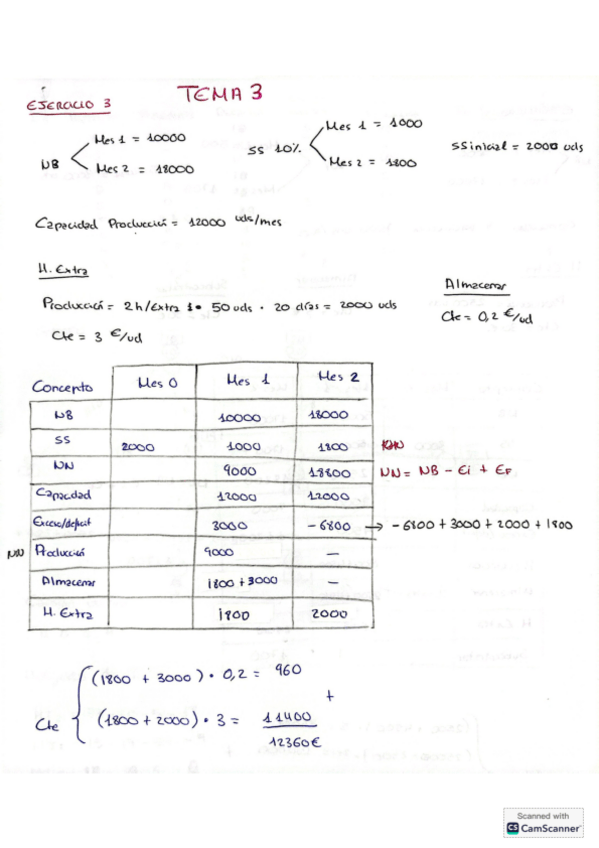 TEMA 3
EJERCICIO 3
NB
Mes 1 = 10000
Mes 2 = 18000
SS 10%
Mes 1 = 1000
Mes 2 = 1800
SS inicial = 2000 uds
Capacidad Producción = 12000 uds/mes
H. Extra
Producción = 2h/Extra 1 · 50 uds · 20 días = 2000 uds
Cte = 3 €/ud
Almacenar
Cte = 0,2 €/ud
Concepto Mes 0 Mes 1 Mes 2
NB 10000 18000
SS 2000 1000 1800
NN 9000 18800 NN = NB - Ei + EF
Capacidad 12000 12000
Exceso/deficit 3000 -6800 → -6800 + 3000 + 2000 + 1800
NN Producción 9000 —
Almacenar 1800 + 3000 —
H. Extra 1800 2000
Cte
(1800 + 3000) · 0,2 = 960
+
(1800 + 2000) · 3 = 11400
12360€
Scanned with
CS CamScanner